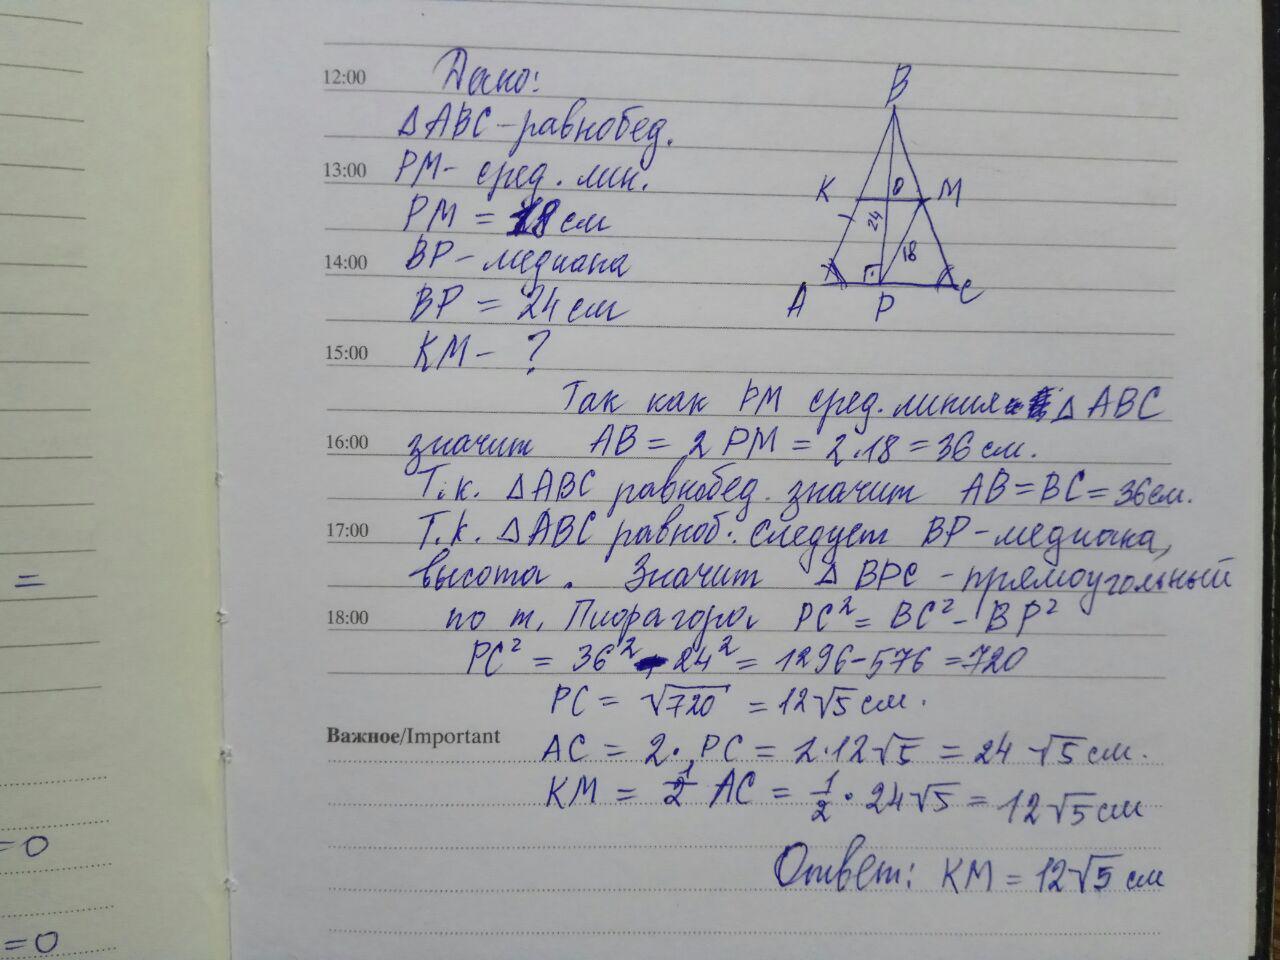 12:00
Дано:
B
△ABC-равнобед.
13:00
PM- сред. лин.
K
O
M
PM = 18 см
24
14:00
BP-медиана
18
BP = 24 см
A
P
C
15:00
KM- ?
Так как PM сред. линия △ABC
16:00
значит AB = 2 PM = 2·18 = 36 см.
Т.к. △ABC равнобед. значит AB=BC=36см.
17:00
Т.к. △ABC равноб. следует BP-медиана,
высота. Значит △BPC-прямоугольный
=
18:00
по т. Пифагора. PC² = BC² - BP²
PC² = 36² - 24² = 1296-576 =720
PC = √720 = 12√5 см.
Важное/Important
AC = 2·PC = 2·12√5 = 24 √5 см.
KM = 1/2 AC = 1/2 · 24√5 = 12√5 см
=0
Ответ: KM = 12√5 см
=0